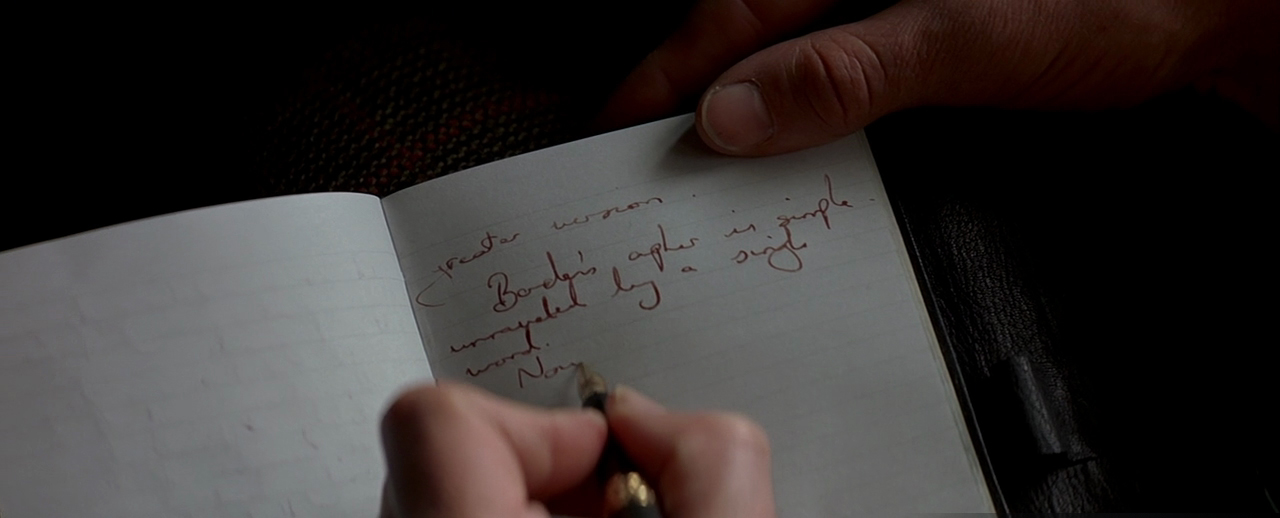 greater version.
Borden's cipher is simple.
unraveled by a single
word.
Now